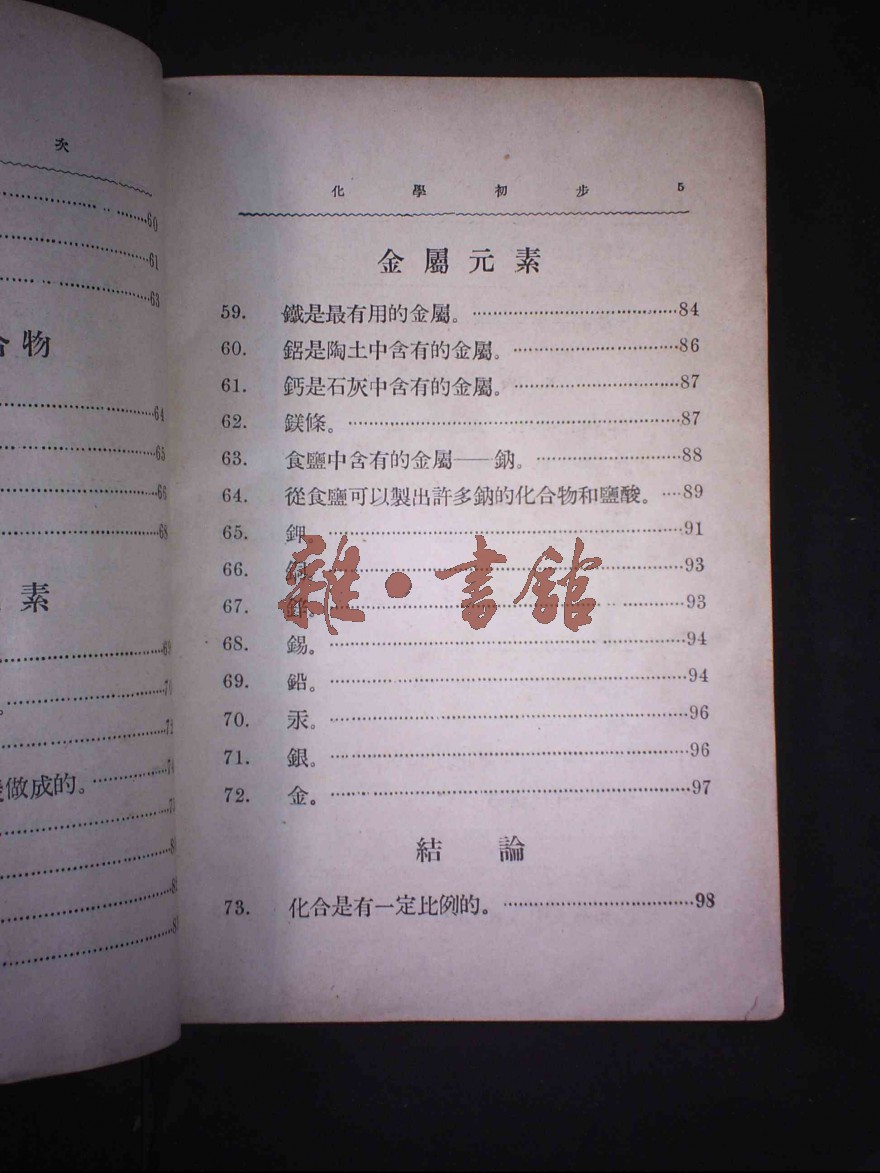 次
60
61
63
合物
64
65
66
68
素
69
70
72
做成的。
化學初步 5
金屬元素
59. 鐵是最有用的金屬。 84
60. 鋁是陶土中含有的金屬。 86
61. 鈣是石灰中含有的金屬。 87
62. 鎂條。 87
63. 食鹽中含有的金屬——鈉。 88
64. 從食鹽可以製出許多鈉的化合物和鹽酸。 89
65. 鉀。 91
66. 銅。 93
67. 鋅。 93
68. 錫。 94
69. 鉛。 94
70. 汞。 96
71. 銀。 96
72. 金。 97
結論
73. 化合是有一定比例的。 98
雜·書館